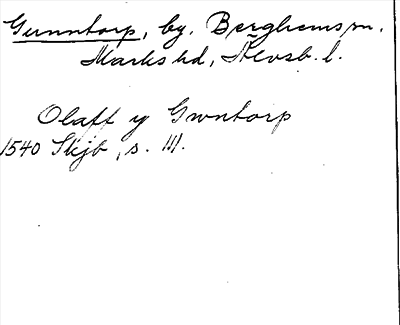 Gunntorp, by. Berghems sn.
Marks hd, Älvsb. l.
Olaff y Gwntorp
1540 Skjb, s. 111.